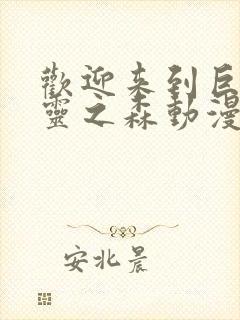 歡迎來到巨
靈之森動漫
安北晨